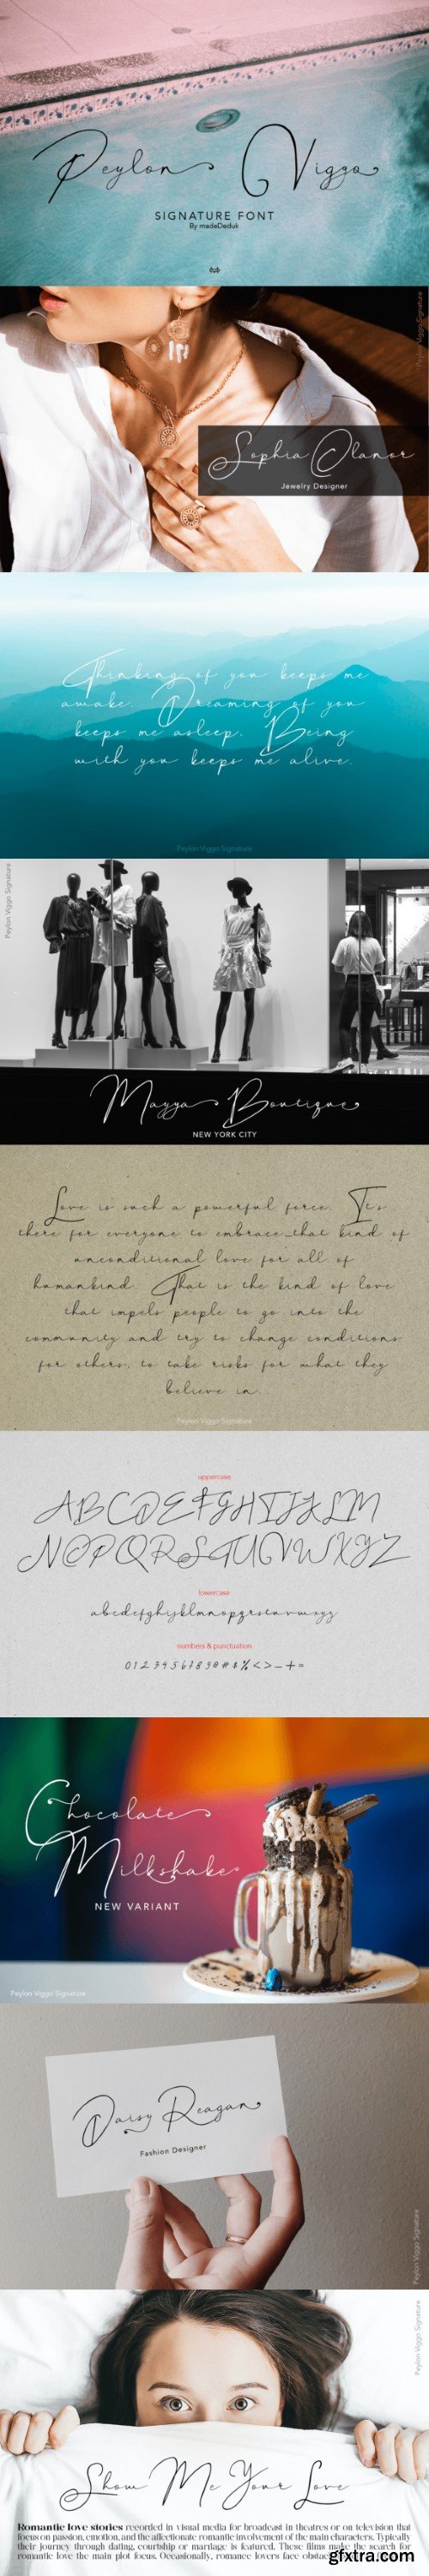 Peylon Viggo
SIGNATURE FONT
By madeDeduk
Peylon Viggo Signature
Sophia Olanor
Jewelry Designer
Thinking of you keeps me
awake. Dreaming of you
keeps me asleep. Being
with you keeps me alive.
Peylon Viggo Signature
Peylon Viggo Signature
Mayya Boutique
NEW YORK CITY
Love is such a powerful force. It's
there for everyone to embrace_that kind of
unconditional love for all of
humankind. That is the kind of love
that impels people to go into the
community and try to change conditions
for others, to take risks for what they
believe in.
Peylon Viggo Signature
uppercase
ABCDEFGHIJKLM
NOPQRSTUVWXYZ
lowercase
abcdefghijklmnopqrstuvwxyz
numbers & punctuation
0123456789@#$%<>_+=
Chocolate
Milkshake
NEW VARIANT
Peylon Viggo Signature
Daisy Reagan
Fashion Designer
Peylon Viggo Signature
Peylon Viggo Signature
Show Me Your Love
Romantic love stories recorded in visual media for broadcast in theatres or on television that
focus on passion, emotion, and the affectionate romantic involvement of the main characters. Typically
their journey through dating, courtship or marriage is featured. These films make the search for
romantic love the main plot focus. Occasionally, romance lovers face obstac
gfxtra.com